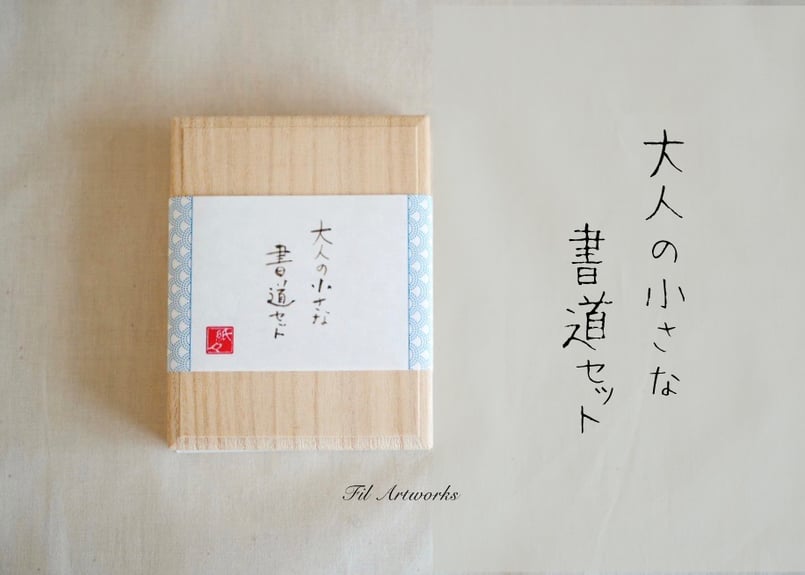 大人の小さな
書道セット
大人の小さな
書道セット
紙々
Fil Artworks